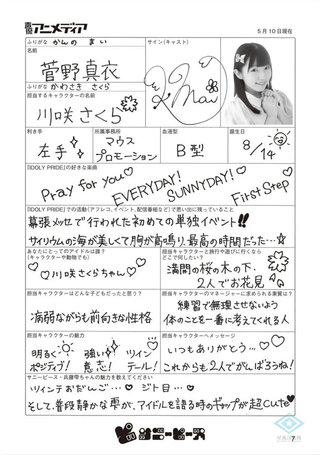 アニメディア
5月10日現在
ふりがな かんの まい
名前
菅野真衣
サイン(キャスト)
ふりがな かわさき さくら
担当するキャラクターの名前
川咲さくら
利き手
左手
所属事務所
マウス
プロモーション
血液型
B型
誕生日
8/14
『IDOLY PRIDE』の好きな楽曲
Pray for you♡ EVERYDAY! SUNNYDAY! First Step
『IDOLY PRIDE』での活動(アフレコ、イベント、配信番組など)で思い出に残っていること
幕張メッセで行われた初めての単独イベント!!
サイリウムの海が美しくて胸が高鳴り、最高の時間だった…☆
あなたにとってのアイドルは誰?
(キャラクターや動物でも)
♡川咲さくらちゃん♡
担当キャラクターと旅行や遊びに行くなら
どこで何したい?
満開の桜の木の下、
2人でお花見
担当キャラクターはどんな子どもだったと思う?
病弱ながらも前向きな性格
担当キャラクターのマネージャーに求められる素質は?
練習で無理させないよう
体のことを一番に考えてくれる人
担当キャラクターの魅力
明るく
ポジティブ!
強い
意志!
ツイン
テール!
担当キャラクターへメッセージ
いつもありがとう…♡
これからも2人でがんばろうね!
サニーピース・兵藤雫ちゃんの魅力を教えてください
ツインテおだんご… ジト目…
そして、普段静かな雫が、アイドルを語る時のギャップが超cute♡
サニーピース